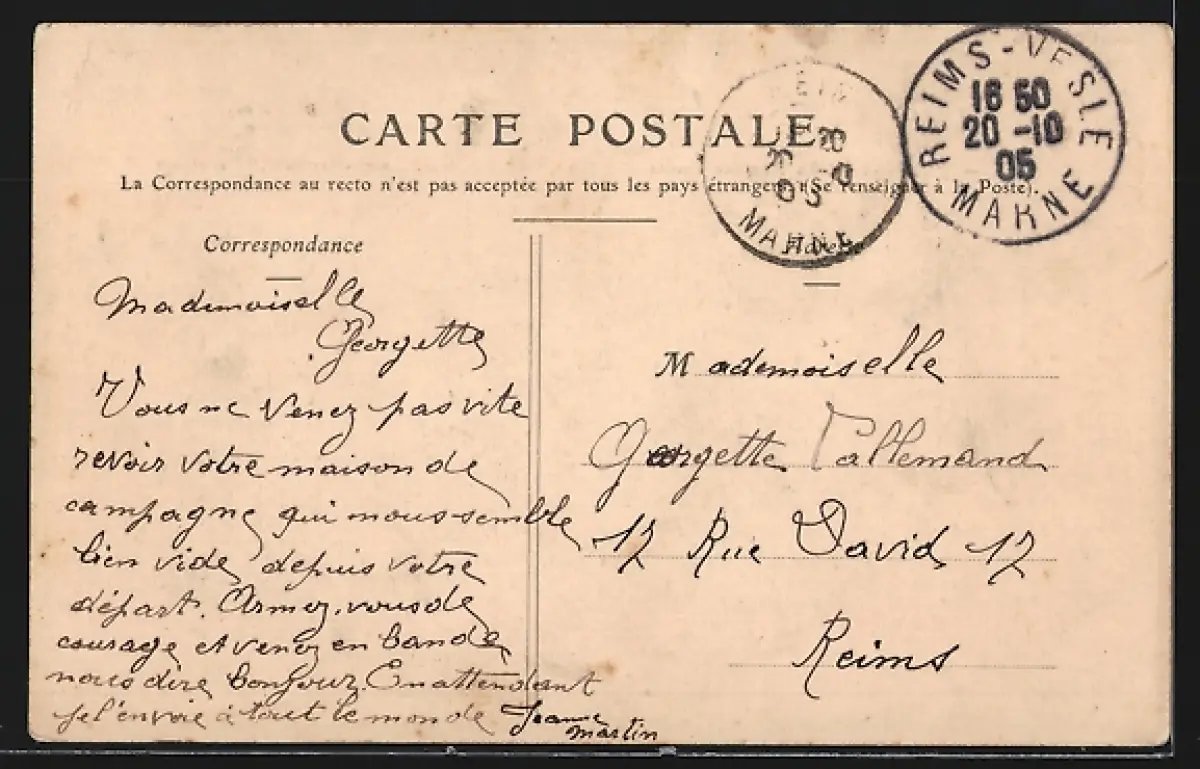 CARTE POSTALE
La Correspondance au recto n'est pas acceptée par tous les pays étrangers. (Se renseigner à la Poste).
REIMS-VESLE
16 50
20 -10
05
MARNE
20
20
05
MARNE
Correspondance
Adresse
Mademoiselle
Georgette
Vous ne venez pas vite
revoir votre maison de
campagne qui nous semble
bien vide depuis votre
départ. Armez-vous de
courage et venez en bande
nous dire bonjour. En attendant
je l'envoie à tout le monde Jeanne
Martin
Mademoiselle
Georgette Lallemand
12 Rue David 12
Reims